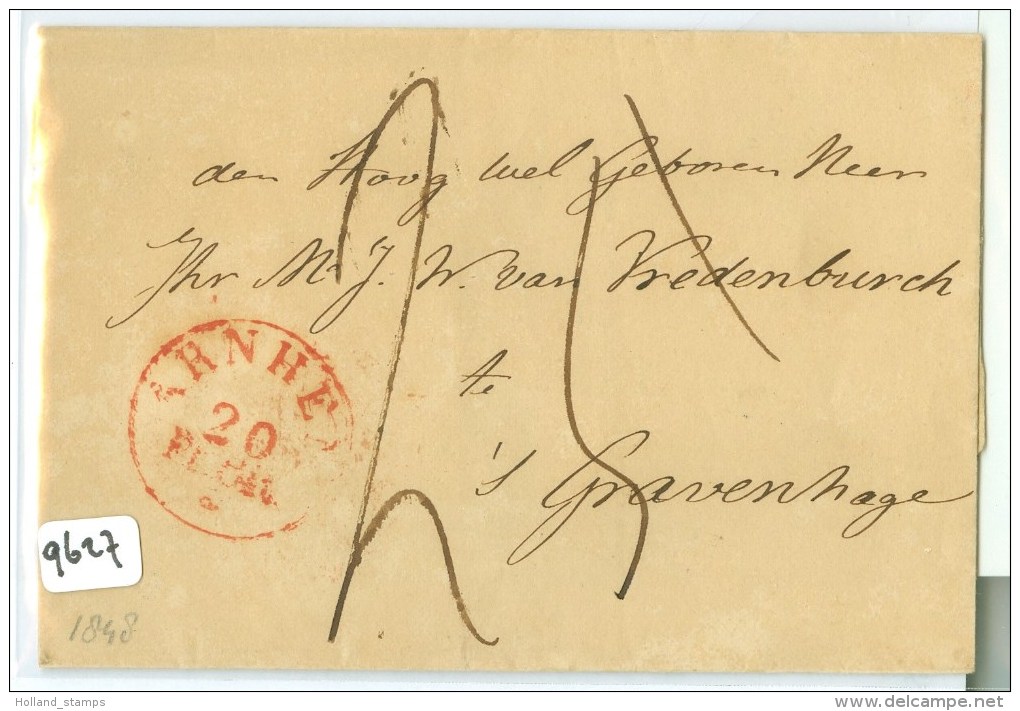 den Hoog wel Geboren Heer
Jhr Mr J. W. van Vredenburch
te
's Gravenhage
25
ARNHE
20
9627
1848
Holland_stamps
www.delcampe.net